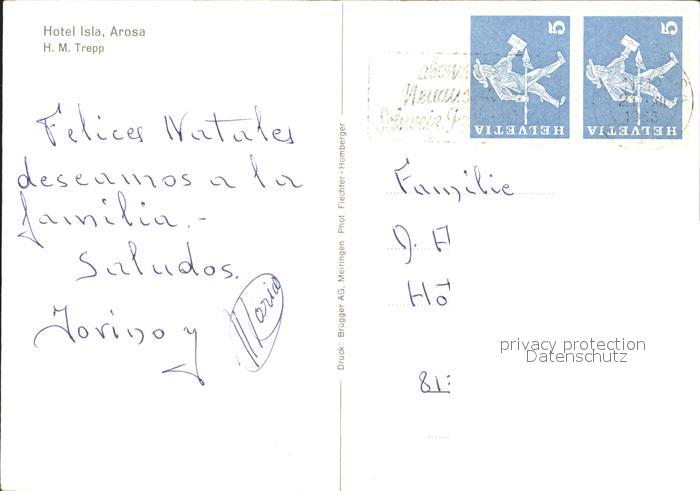 Hotel Isla, Arosa
H. M. Trepp
Felices Natales
deseamos a la
familia.-
Saludos.
Torino y
Maria
Druck: Brügger AG, Meiringen Phot. Flechter-Homberger
5
HELVETIA
5
HELVETIA
Familie
D. H
Hö
privacy protection
Datenschutz
81